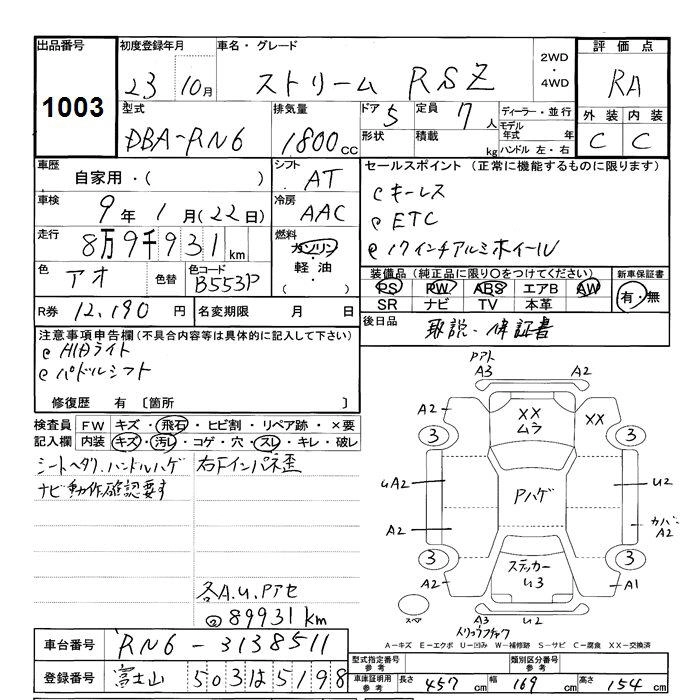 出品番号 初度登録年月 車名・グレード 2WD ・ 4WD 評価点
1003 23 10月 ストリーム RSZ RA
型式 排気量 ドア 5 定員 7 人 ディーラー・並行 外装 内装
DBA-RN6 1800cc 形状 積載 kg モデル年式 年 C C
ハンドル 左・右
車歴 シフト セールスポイント (正常に機能するものに限ります)
自家用・( ) AT
キーレス
車検 9年 1月(22日) 冷房 AAC
ETC
走行 8万9千931km 燃料 ガソリン・軽油・( )
17インチアルミホイール
色 アオ 色替 色コード B553P
装備品 (純正品に限り○をつけてください) 新車保証書
PS PW ABS エアB AW 有・無
SR ナビ TV 本革
R券 12,190円 名変期限 月 日
後日品 取説・保証書
注意事項申告欄(不具合内容等は具体的に記入して下さい)
HIDライト
パドルシフト
修復歴 有 〔箇所 〕
検査員 FW キズ・飛石・ヒビ割・リペア跡・×要
記入欄 内装 キズ・汚レ・コゲ・穴・スレ・キレ・破レ
シートヘタリ、ハンドルハゲ 右Fインパネ歪
ナビ動作確認要す
各A.U.Pアセ
89931km
車台番号 RN6-3138511
登録番号 富士山 503 は 5198
A3 A2
A2 XX ムラ XX
3 3
UA2 Pハゲ U2
A2 カバーA2
3 ステッカー U3 3
A2 A1
スペア A3 U2
A-キズ E-エクボ U-凹み W-補修跡 S-サビ C-腐食 XX-交換済
型式指定番号 参考 類別区分番号 参考
車庫証明用 参考 長さ 457cm 幅 169cm 高さ 154cm